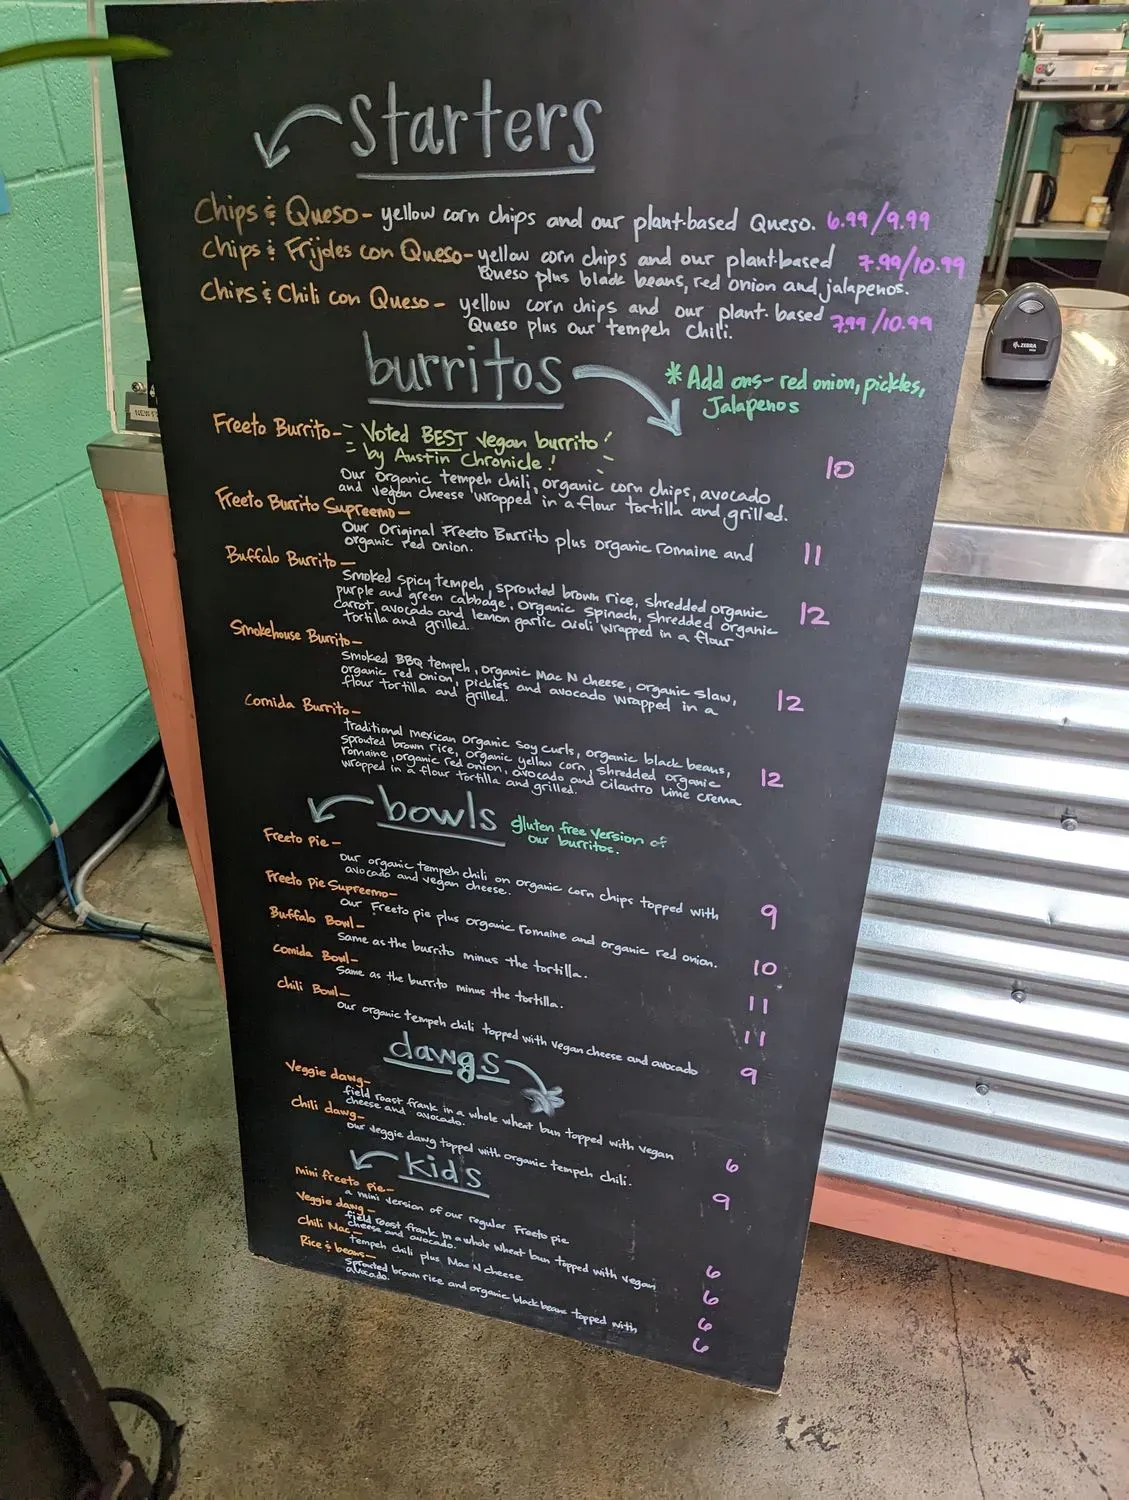 Starters
Chips & Queso- yellow corn chips and our plant-based Queso. 6.99/9.99
Chips & Frijoles con Queso- yellow corn chips and our plant-based 7.99/10.99
Queso plus black beans, red onion and jalapenos.
Chips & Chili con Queso- yellow corn chips and our plant-based 7.99/10.99
Queso plus our tempeh chili.
burritos
* Add ons- red onion, pickles,
Jalapenos
Freeto Burrito- Voted BEST vegan burrito!
by Austin Chronicle!
Our organic tempeh chili, organic corn chips, avocado 10
and vegan cheese wrapped in a flour tortilla and grilled.
Freeto Burrito Supreemo-
Our Original Freeto Burrito plus organic romaine and 11
organic red onion.
Buffalo Burrito-
Smoked spicy tempeh, sprouted brown rice, shredded organic
purple and green cabbage, organic spinach, shredded organic 12
carrot, avocado and lemon garlic aioli wrapped in a flour
tortilla and grilled.
Smokehouse Burrito-
Smoked BBQ tempeh, organic Mac N cheese, organic slaw,
organic red onion, pickles and avocado wrapped in a 12
flour tortilla and grilled.
Comida Burrito-
traditional mexican organic soy curls, organic black beans,
sprouted brown rice, organic yellow corn, shredded organic 12
romaine, organic red onion, avocado and cilantro lime crema
wrapped in a flour tortilla and grilled.
bowls
gluten free version of
our burritos.
Freeto pie-
Our organic tempeh chili on organic corn chips topped with 9
avocado and vegan cheese.
Freeto pie Supreemo-
Our Freeto pie plus organic romaine and organic red onion. 10
Buffalo Bowl-
Same as the burrito minus the tortilla. 11
Comida Bowl-
Same as the burrito minus the tortilla. 11
Chili Bowl-
Our organic tempeh chili topped with vegan cheese and avocado 9
dawgs
Veggie dawg-
field roast frank in a whole wheat bun topped with vegan 6
cheese and avocado.
Chili dawg-
Our veggie dawg topped with organic tempeh chili. 9
kids
mini freeto pie-
a mini version of our regular Freeto pie 6
Veggie dawg-
field roast frank in a whole wheat bun topped with vegan 6
cheese and avocado.
Chili Mac-
tempeh chili plus Mac N cheese 6
Rice & beans-
Sprouted brown rice and organic black beans topped with 6
avocado.
ZEBRA